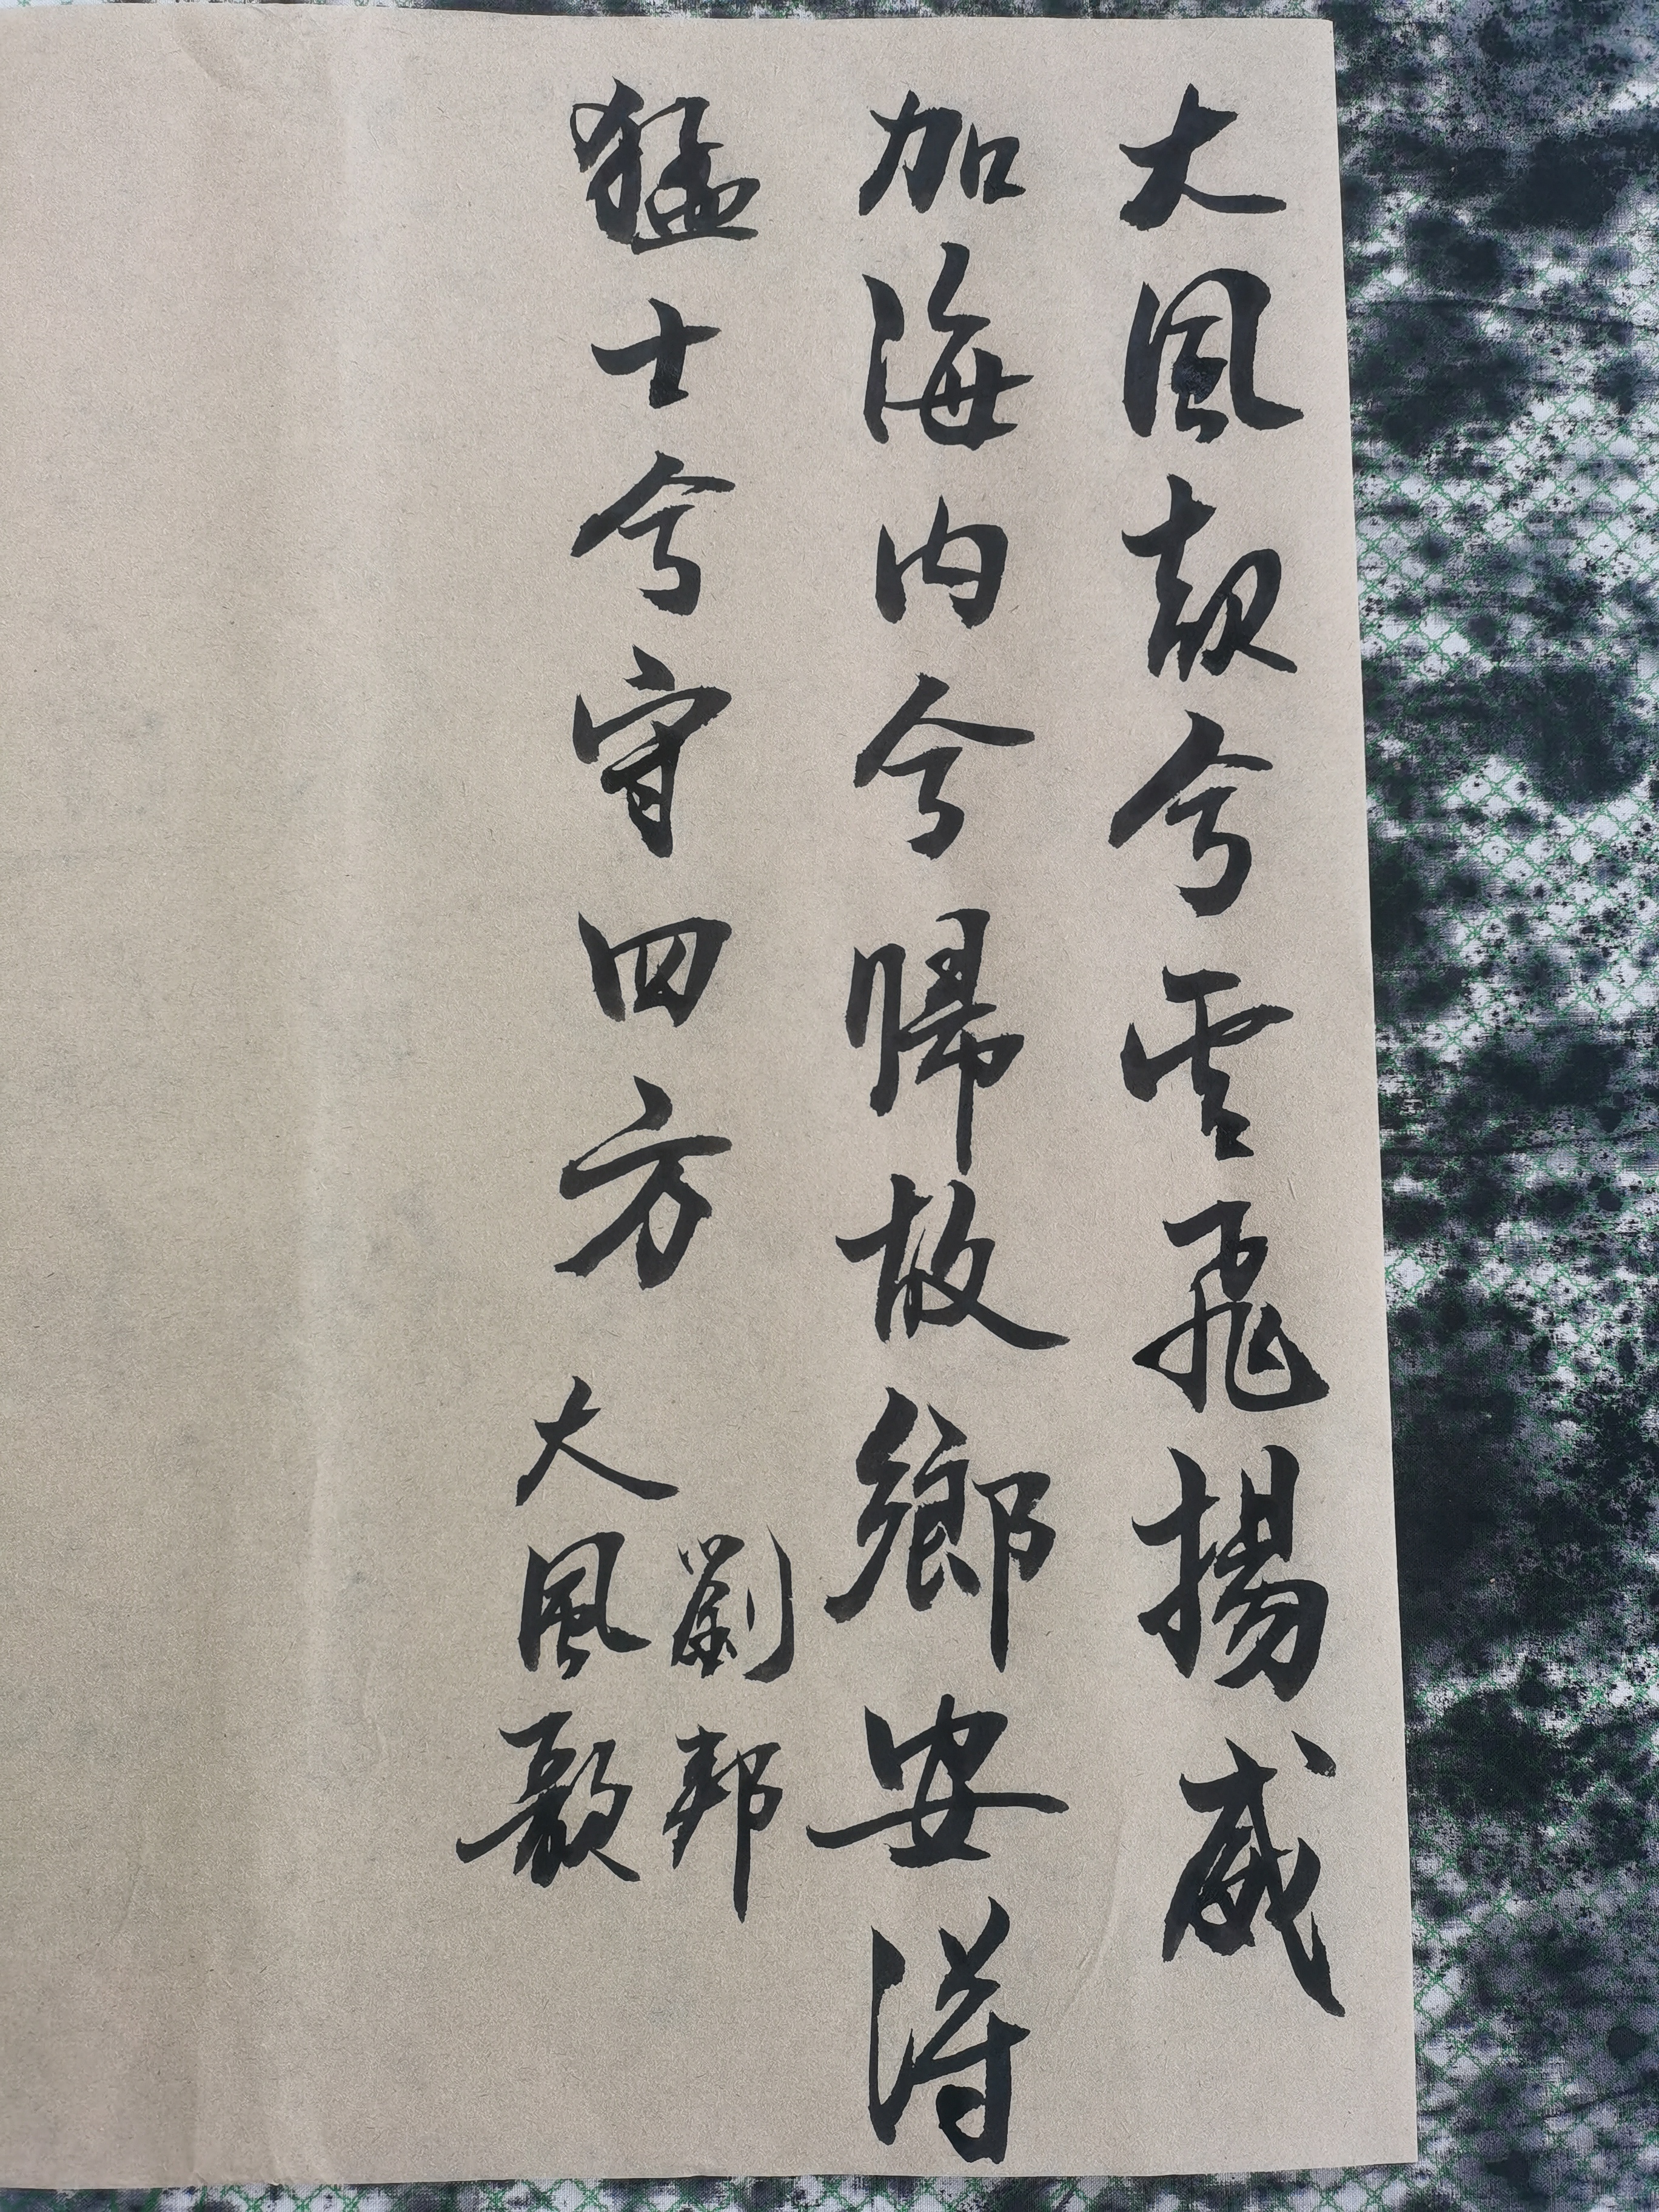 大風起兮雲飛揚威
加海内兮歸故鄉安得
猛士兮守四方
劉邦
大風歌